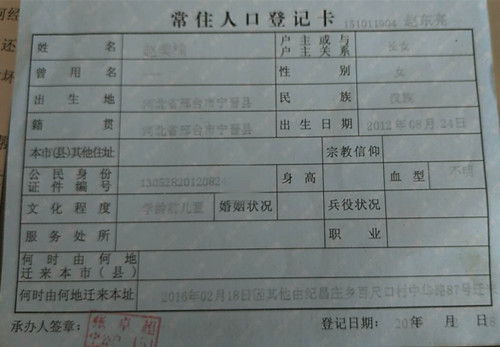 常住人口登记卡 151011904 赵东亮
姓名 赵 户主或与户主关系 女
曾用名 — 性别 女
出生地 河北省邢台市宁晋县 民族 汉族
籍贯 河北省邢台市宁晋县 出生日期 2012年08月24日
本市(县)其他住址 宗教信仰
公民身份证件编号 1305282012082 身高 血型 不明
文化程度 学龄前儿童 婚姻状况 兵役状况
服务处所 职业
何时由何地迁来本市(县)
何时由何地迁来本址 2016年02月18日因其他由纪昌庄乡百尺口村中华路87号迁来
承办人签章: 登记日期: 20 年 月 日